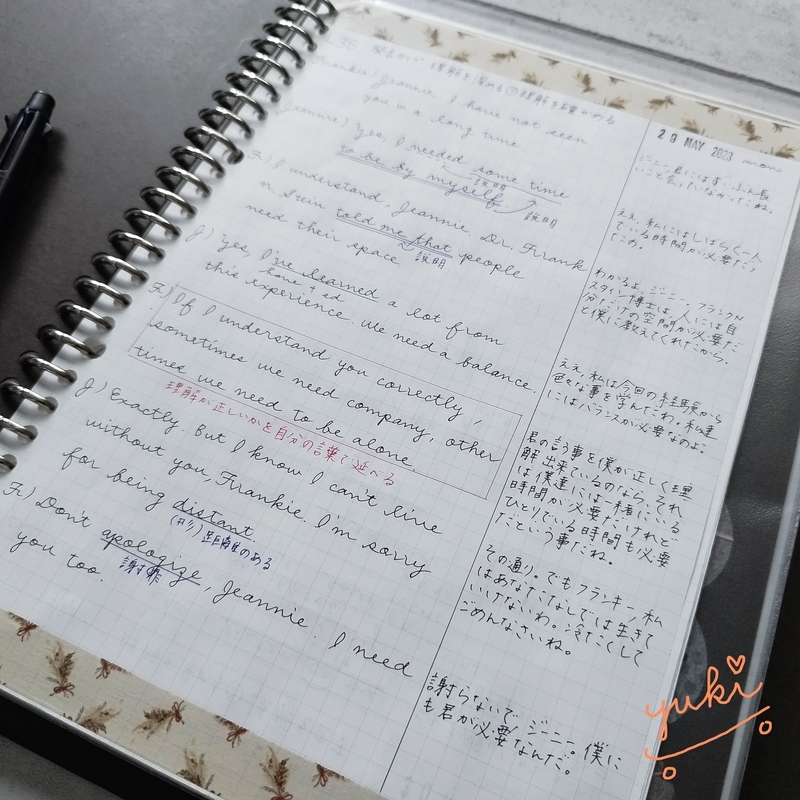 38 発表タイプ 理解を深める ① 理解を確かめる
Frankie) Jeannie, I have not seen
you in a long time.
Jeannie) Yes, I needed some time
to be by myself
説明
説明
Fr.) I understand, Jeannie. Dr. Frank
n Stein told me that people
説明
need their space.
J) Yes, I've learned a lot from
have + ed
this experience. We need a balance.
Fr.) If I understand you correctly,
sometimes we need company, other
times we need to be alone.
理解が正しいかを自分の言葉で述べる
J) Exactly. But I know I can't live
without you, Frankie. I'm sorry
for being distant.
(形) 距離のある
Fr.) Don't apologize, Jeannie. I need
謝罪
you too.
29 MAY 2023
ジニー、君にはずいぶん長
いこと会っていなかったね。
ええ、私にはしばらく一人
でいる時間が必要だっ
たの。
わかるよ、ジニー。フランクン
スタイン博士は、人には自
分だけの空間が必要だ
と僕に教えてくれたから。
ええ、私は今回の経験から
色々な事を学んだわ。私達
にはバランスが必要なのよ。
君の言う事を僕が正しく理
解出来ているのなら、それ
は僕達には一緒にいる
時間が必要だけれど、
ひとりでいる時間も必要
だという事だね。
その通り。でもフランキー、私
はあなたなしでは生きて
いけないわ。冷たくして
ごめんなさいね。
謝らないで、ジニー。僕に
も君が必要なんだ。
yuki